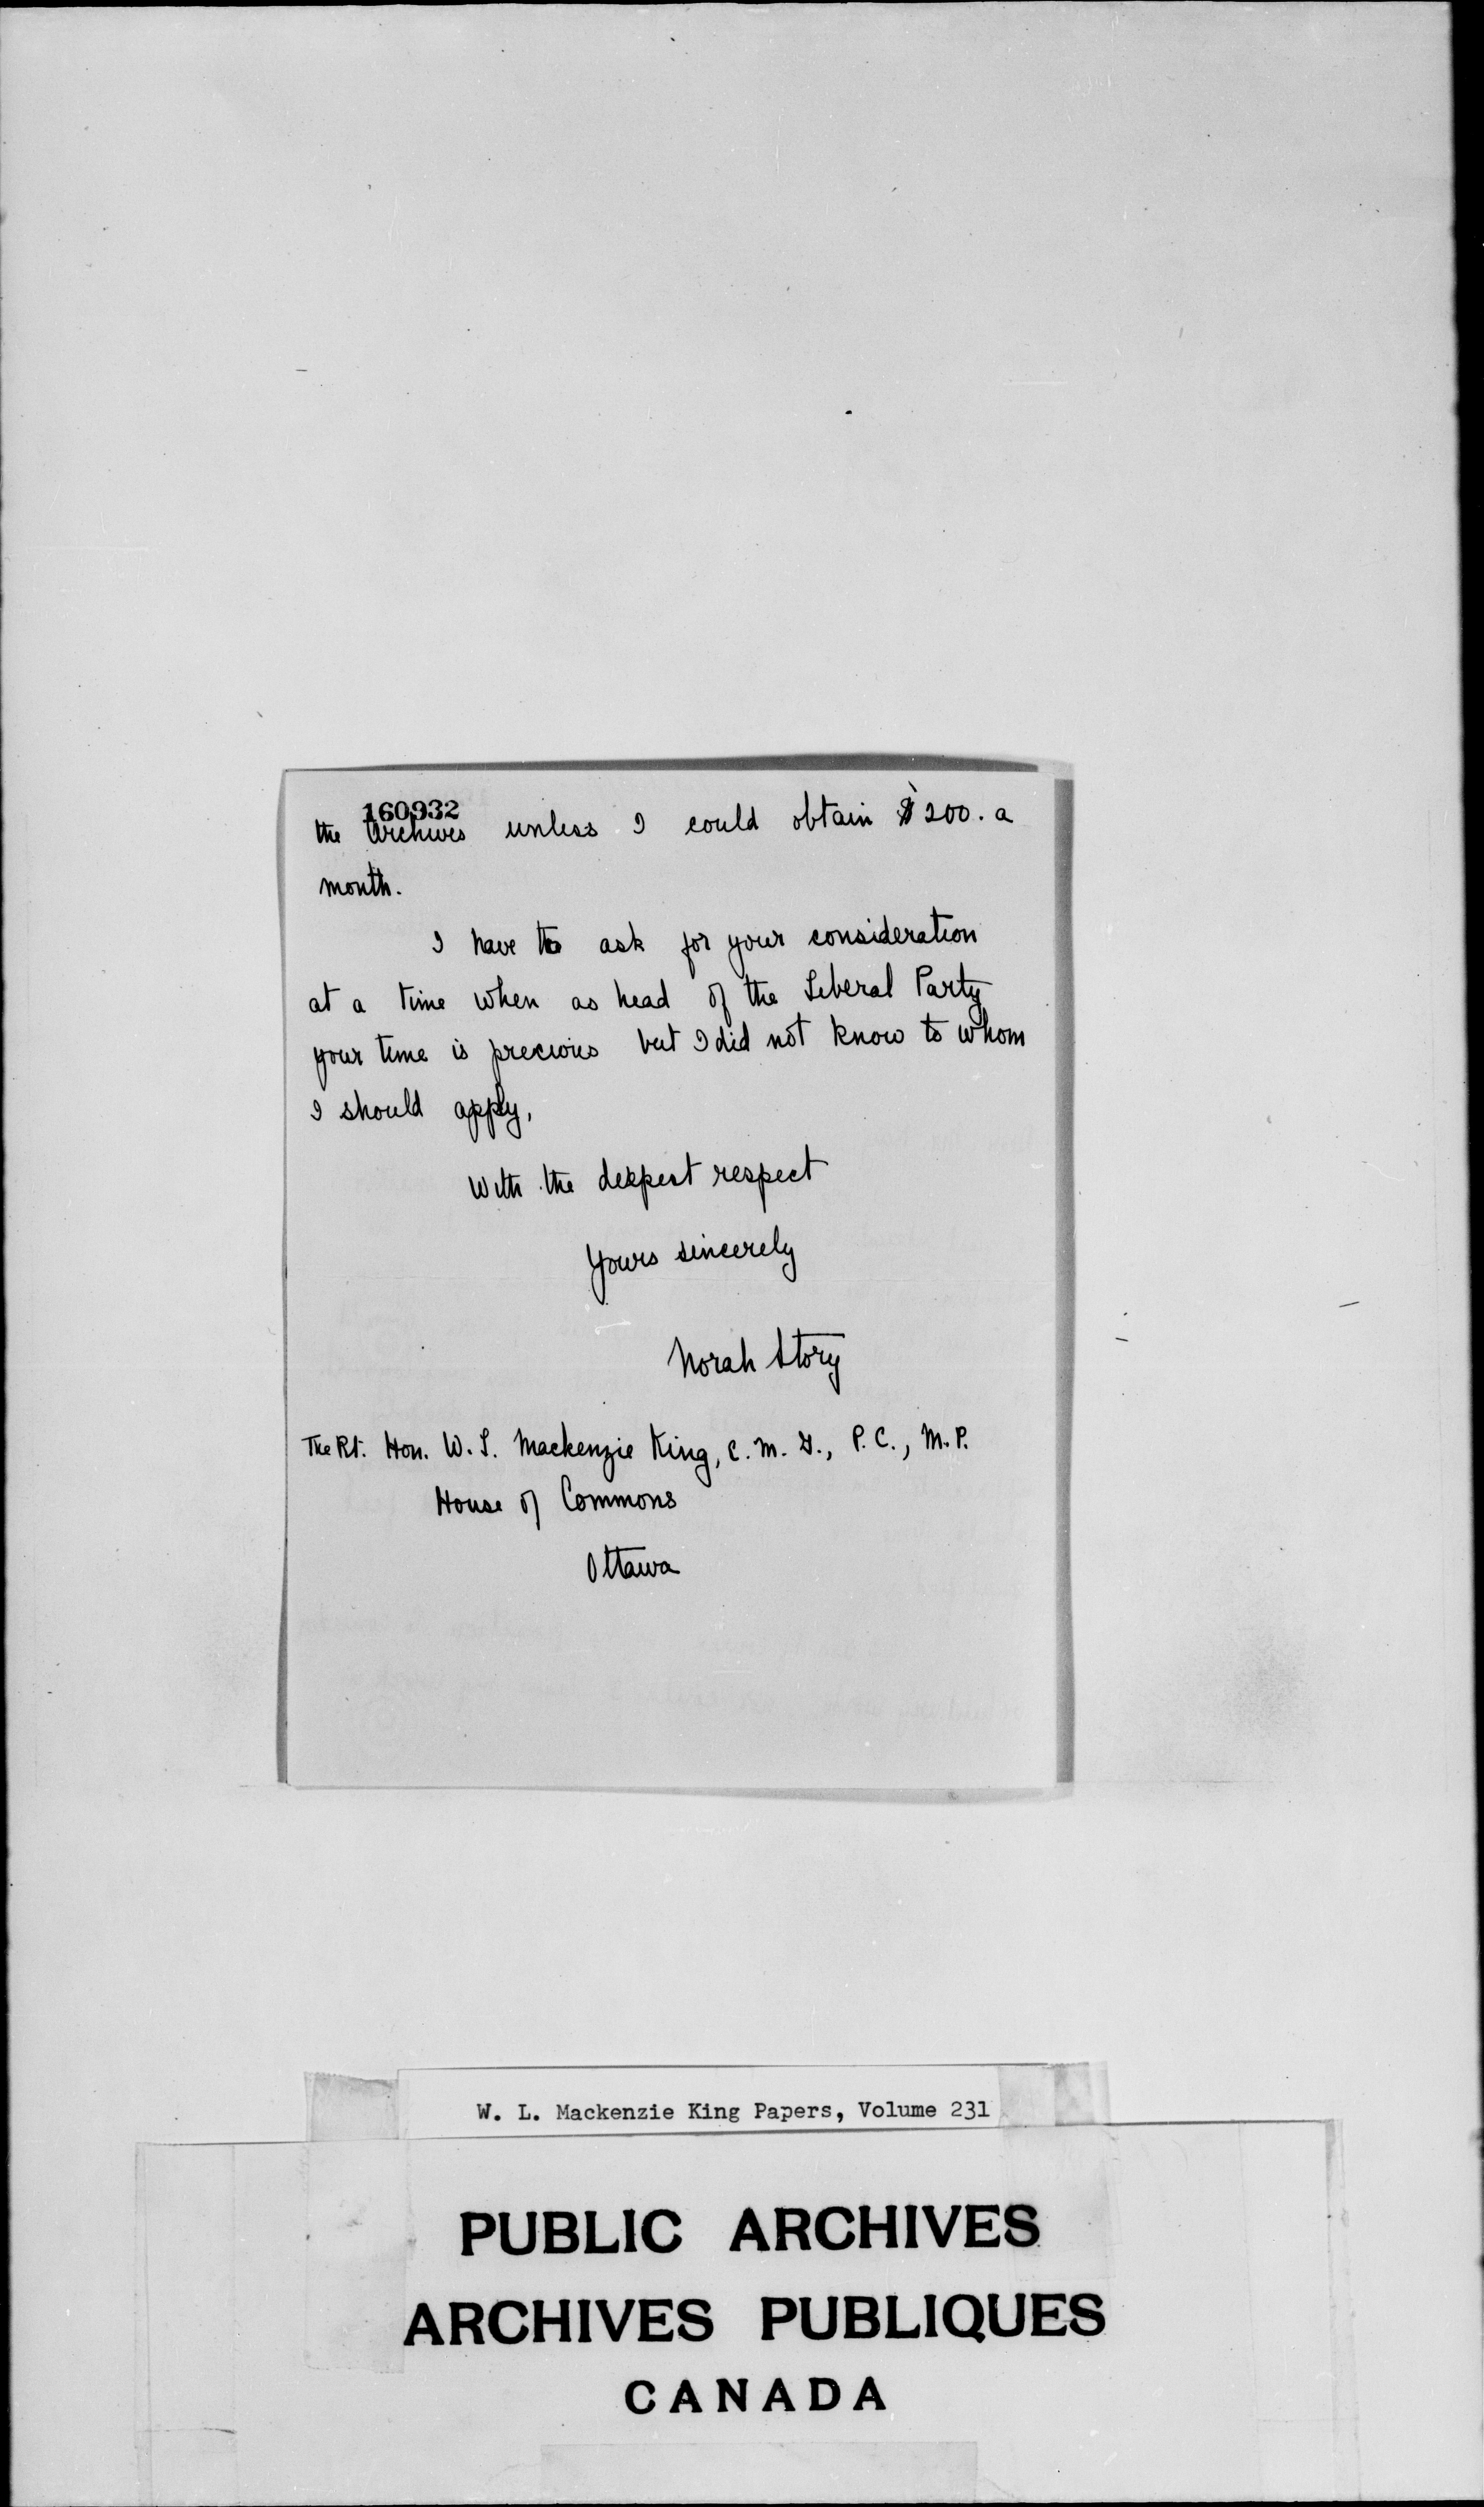 160932
the Archives unless I could obtain $200. a
month.
I have to ask for your consideration
at a time when as head of the Liberal Party
your time is precious but I did not know to whom
I should apply,
With the deepest respect
Yours sincerely
Norah Story
The Rt. Hon. W. L. Mackenzie King, C. M. G., P. C., M. P.
House of Commons
Ottawa
W. L. Mackenzie King Papers, Volume 231
PUBLIC ARCHIVES
ARCHIVES PUBLIQUES
CANADA